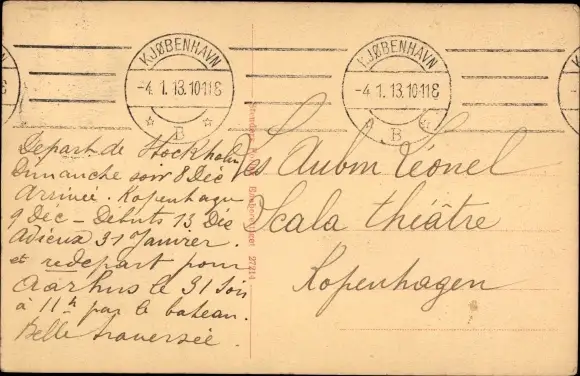 KJØBENHAVN
-4.1.13.10-11E
B
KJØBENHAVN
-4.1.13.10-11E
B
Depart de Stockholm
Dimanche soir 8 Déc
Arrivée. Kopenhague
9 Déc – Débuts 13 Déc
Adieux 31 Janvier.
et redepart pour
Aarhus le 31 soir
à 11h par le bateau.
Belle traversée.
Les Aubin Léonel
Scala théâtre
Kopenhagen
27214